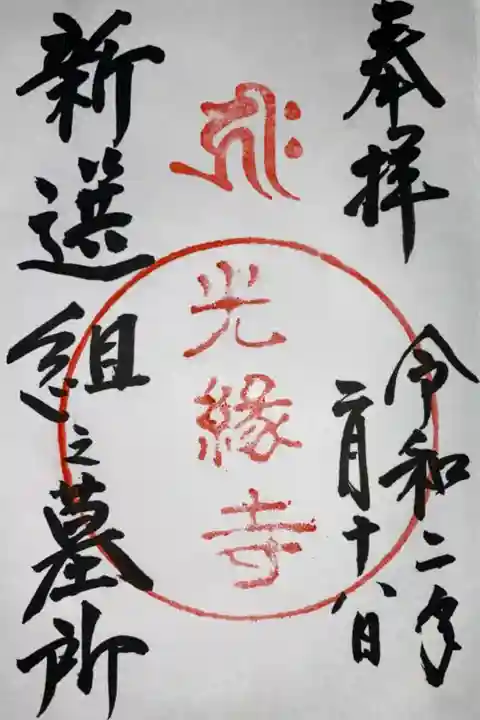 奉拝
令和二年
二月十八日
𑖮𑖿𑖨𑖱𑖾
光緣寺
新選組之墓所